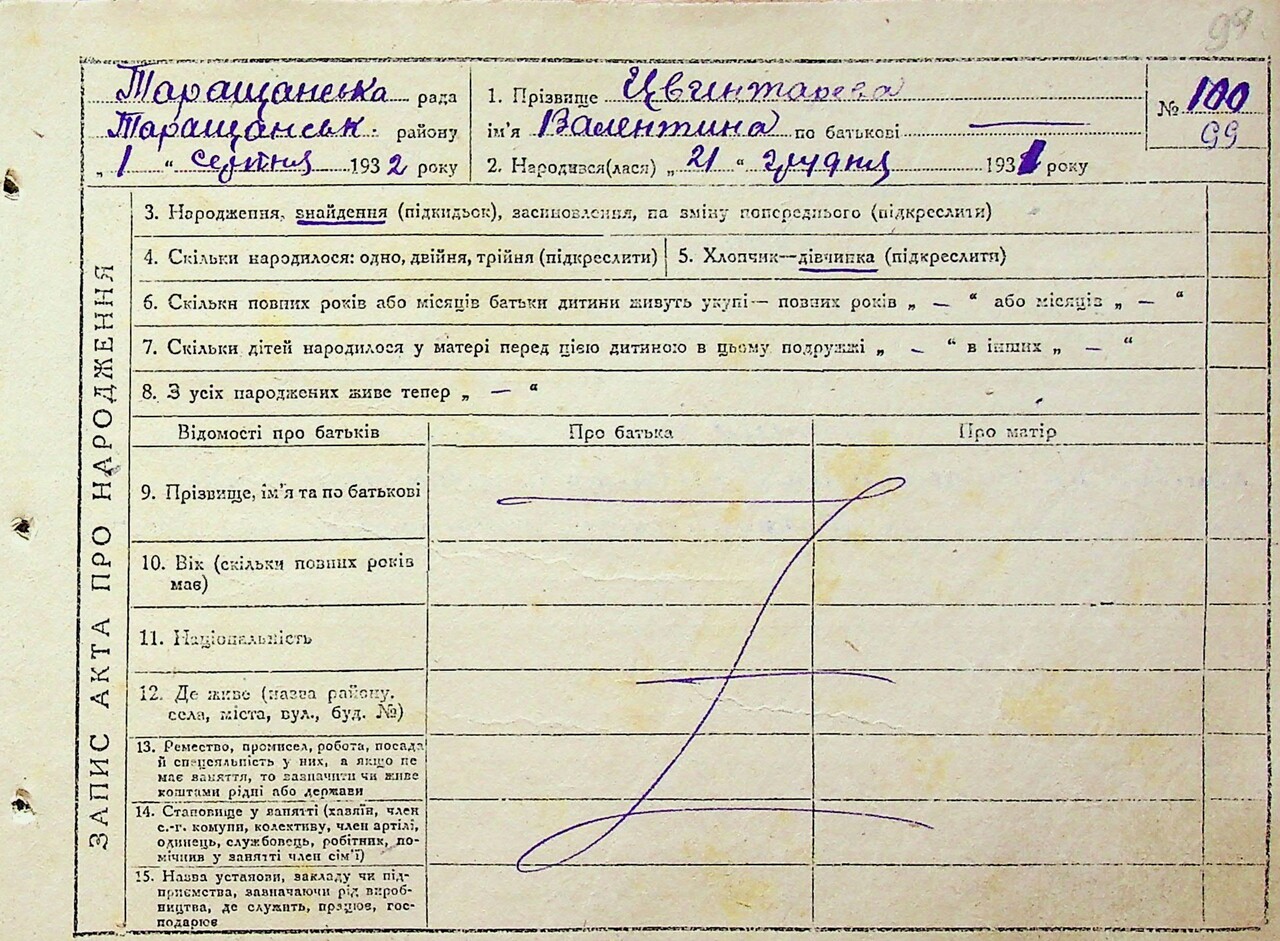 99
Таращанська рада
Таращанськ. району
„ 1 “ серпня 1932 року
1. Прізвище Цвинтарева
ім'я Валентина по батькові —
2. Народився(лася) „ 21 “ грудня 1931 року
№ 100
99
ЗАПИС АКТА ПРО НАРОДЖЕННЯ
3. Народження, знайдення (підкидьок), засиновлення, на зміну попереднього (підкреслити)
4. Скільки народилося: одно, двійня, трійня (підкреслити)
5. Хлопчик—дівчинка (підкреслити)
6. Скільки повних років або місяців батьки дитини живуть укупі— повних років „ — “ або місяців „ — “
7. Скільки дітей народилося у матері перед цією дитиною в цьому подружжі „ — “ в інших „ — “
8. З усіх народжених живе тепер „ — “
Відомості про батьків
Про батька
Про матір
9. Прізвище, ім'я та по батькові
10. Вік (скільки повних років
має)
11. Національність
12. Де живе (назва району,
села, міста, вул., буд. №)
13. Ремество, промисел, робота, посада
й спецсяльність у них, а якщо не
має заняття, то зазначити чи живе
коштами рідні або держави
14. Становище у занятті (хазяїн, член
с.-г. комуни, колективу, член артілі,
одинець, службовець, робітник, по-
мічник у занятті член сім'ї)
15. Назва установи, закладу чи під-
приємства, зазначаючи рід вироб-
ництва, де служить, працює, гос-
подарює